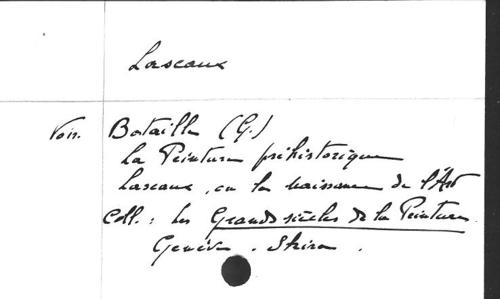 Lascaux
Voir. Bataille (G.)
La Peinture préhistorique
Lascaux, ou la naissance de l'Art
Coll.: Les Grands siècles de la Peinture.
Genève. Skira.